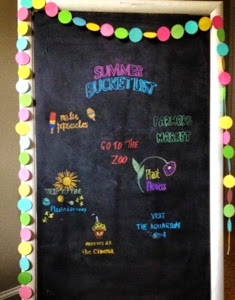 SUMMER
BUCKETLIST
make
popsicles
FARMERS
MARKET
GO TO THE
ZOO
Plant
flowers
VISIT
THE AQUARIUM
movies at
the cinema